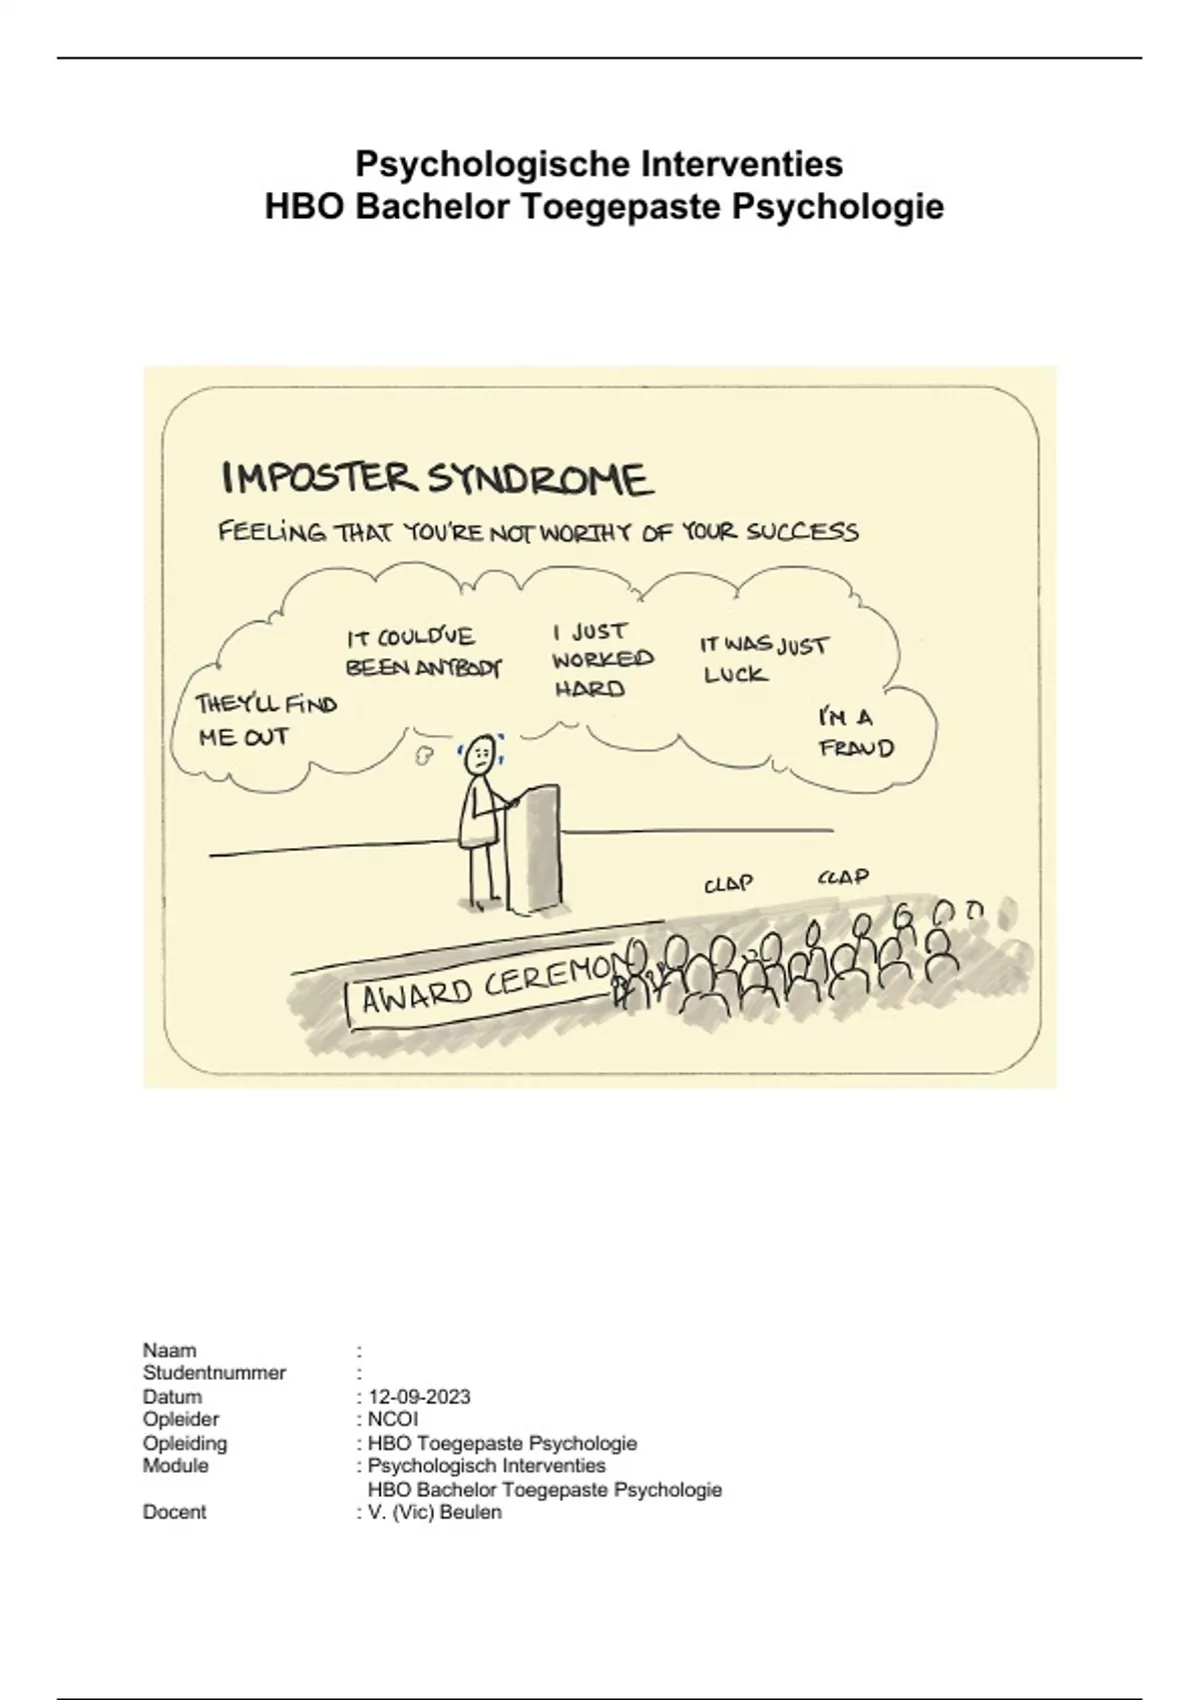 Psychologische Interventies
HBO Bachelor Toegepaste Psychologie
IMPOSTER SYNDROME
FEELING THAT YOU'RE NOT WORTHY OF YOUR SUCCESS
IT COULD'VE
BEEN ANYBODY
I JUST
WORKED
HARD
IT WAS JUST
LUCK
THEY'LL FIND
ME OUT
I'M A
FRAUD
CLAP CLAP
AWARD CEREMON
Naam :
Studentnummer :
Datum : 12-09-2023
Opleider : NCOI
Opleiding : HBO Toegepaste Psychologie
Module : Psychologisch Interventies
HBO Bachelor Toegepaste Psychologie
Docent : V. (Vic) Beulen